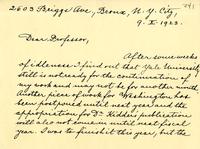 2603 Briggs Ave, Bronx, N.Y. City,
9. X. 1923.
Dear Professor,
After some weeks
of idleness I find out that Yale University
still is not ready for the continuation of
my work and may not be for another month.
Another piece of work for Washington has
been postponed until next year and the
appropriation for Dr. Kidder's publication
will also not be in until next fiscal
year. I was to finish it this year, but the